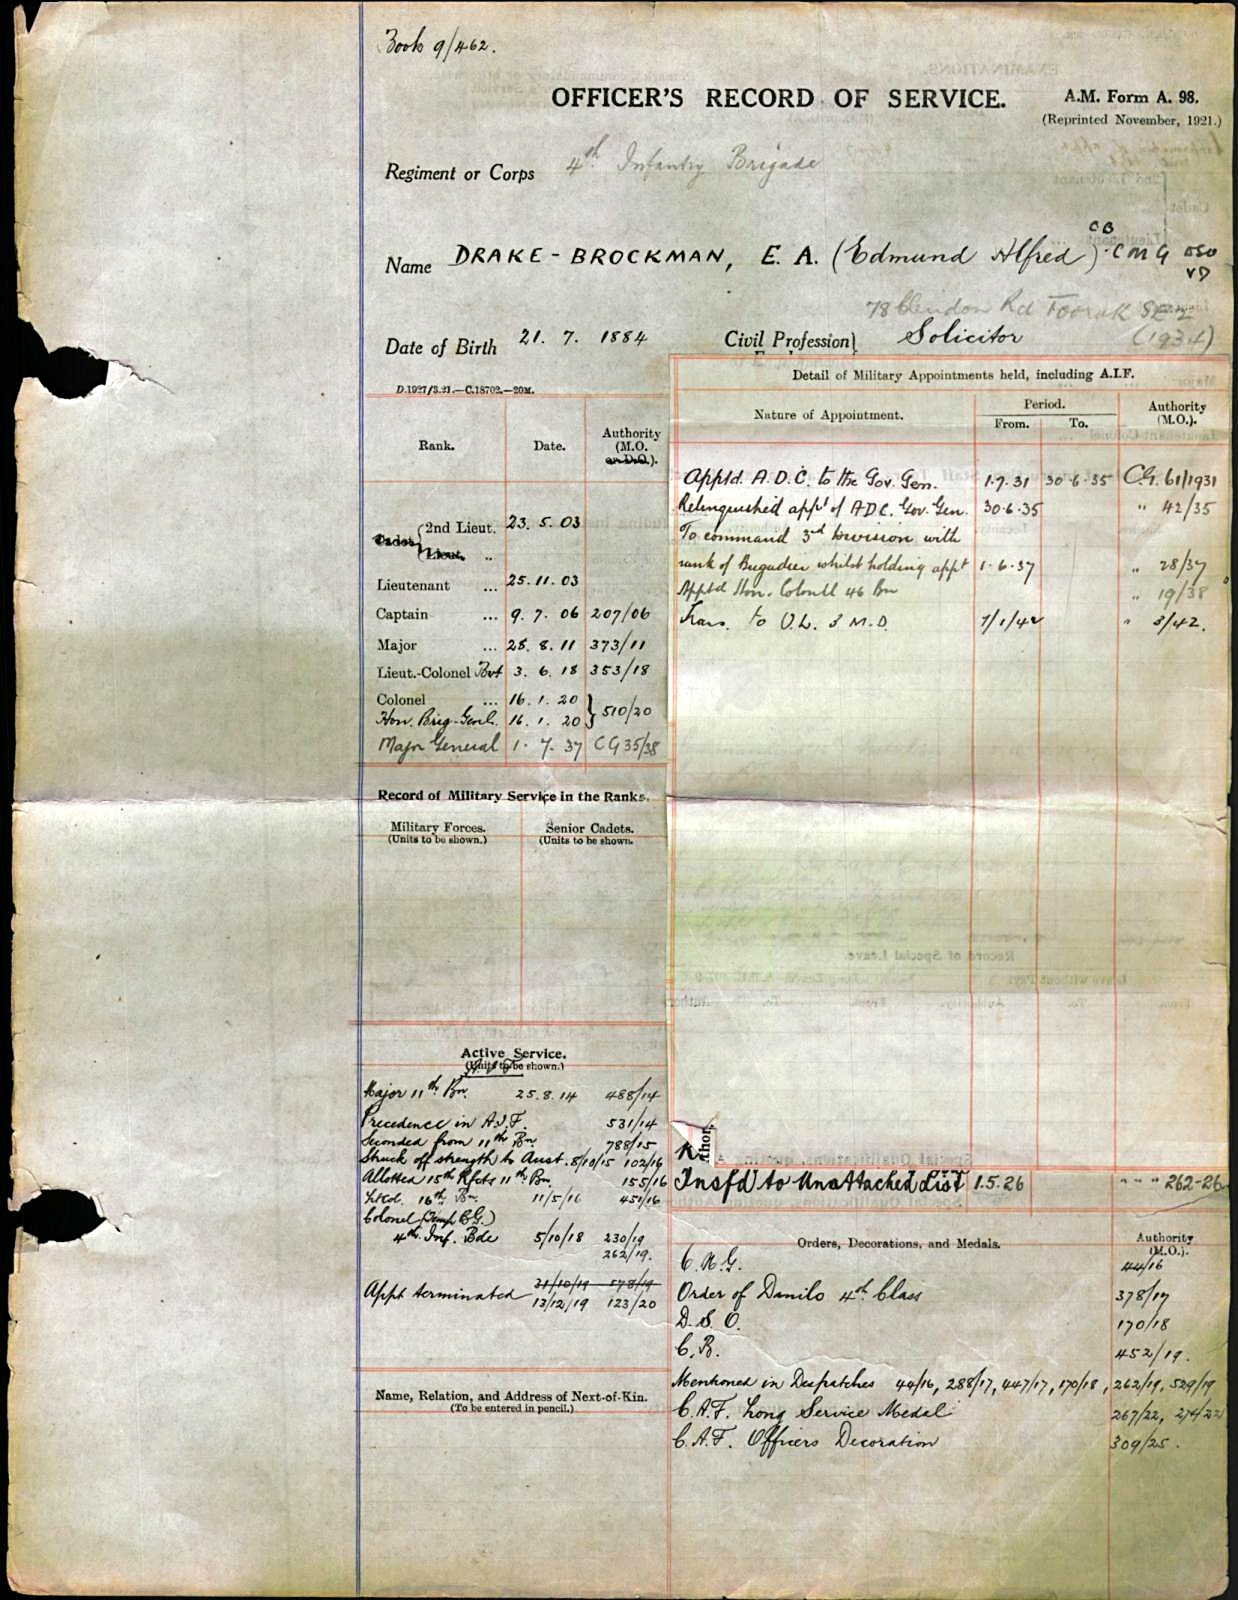 Book 9/462.
OFFICER'S RECORD OF SERVICE.
A.M. Form A. 98.
(Reprinted November, 1921.)
Regiment or Corps 4th Infantry Brigade
Name DRAKE-BROCKMAN, E. A. (Edmund Alfred) CB CMG DSO VD
78 Clendon Rd Toorak SE 2
(1934)
Date of Birth 21. 7. 1884
Civil Profession} Solicitor
D.1927/3.21.—C.18702.—20M.
Rank. Date. Authority (M.O. or D.O.).
2nd Lieut. 23. 5. 03
Cadet Lieut. ..
Lieutenant ... 25. 11. 03
Captain ... 9. 7. 06 207/06
Major ... 28. 8. 11 373/11
Lieut.-Colonel Bvt 3. 6. 18 353/18
Colonel ... 16. 1. 20
Hon. Brig-Genl. 16. 1. 20 } 510/20
Major General 1. 7. 37 CG 35/38
Record of Military Service in the Ranks.
Military Forces. Senior Cadets.
(Units to be shown.) (Units to be shown.
Active Service.
(Units to be shown.)
A.I.F.
Major 11th Bn. 25.8.14 488/14
Precedence in A.I.F. 531/14
Seconded from 11th Bn 788/15
Struck off strength to Aust. 8/10/15 102/16
Allotted 15th Rfcts 11th Bn. 155/16
Lt Col. 16th Bn. 11/5/16 451/16
Colonel (Temp B.G.)
4th Inf. Bde 5/10/18 230/19
262/19.
31/10/19 578/19
Appt terminated 13/12/19 123/20
Name, Relation, and Address of Next-of-Kin.
(To be entered in pencil.)
Detail of Military Appointments held, including A.I.F.
Nature of Appointment. Period. Authority (M.O.).
From. To.
Apptd. A.D.C. to the Gov. Gen. 1.7.31 30.6.35 C.G. 61/1931
Relinquished appt of ADC. Gov. Gen. 30.6.35 " 42/35
To command 3rd Division with
rank of Brigadier whilst holding appt 1.6.37 " 28/37
Apptd Hon. Colonel 46 Bn " 19/38
Trans. to U.L. 3 M.D. 7/1/42 " 3/42.
Author
Tnsf'd to Unattached List 1.5.26 " " " 262-26
Orders, Decorations, and Medals. Authority (M.O.).
C.M.G. 44/16
Order of Danilo 4th Class 378/17
D.S.O. 170/18
C.B. 452/19.
Mentioned in Despatches 44/16, 288/17, 447/17, 170/18, 262/19, 529/19
C.A.F. Long Service Medal 267/22, 274/22
C.A.F. Officers Decoration 309/25.